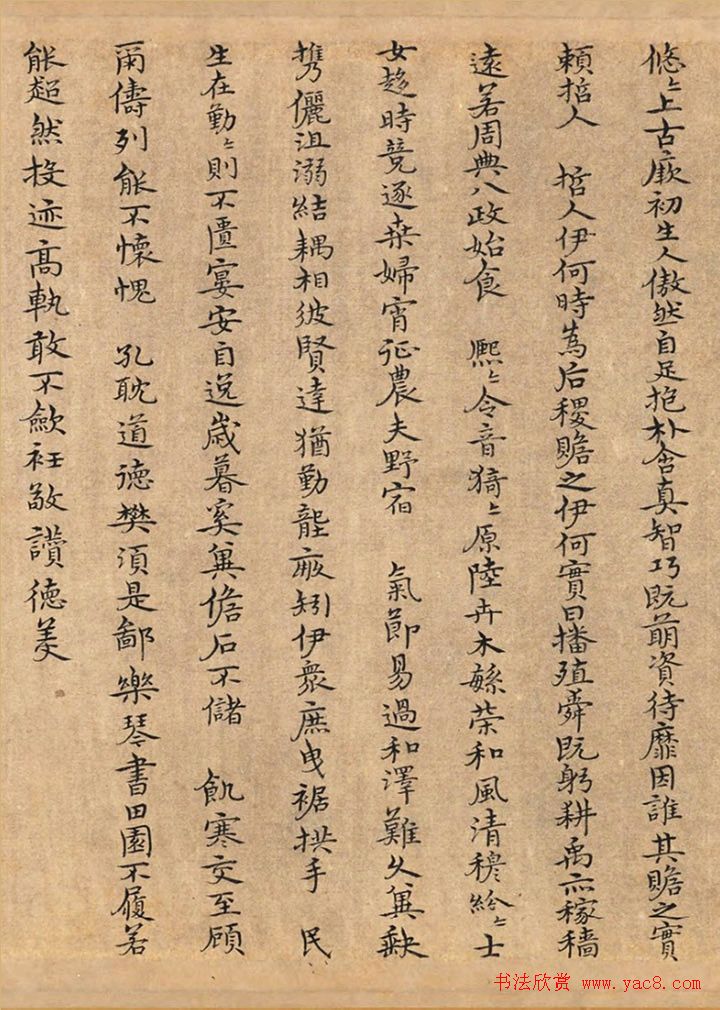 悠〻上古厥初生人傲然自足抱朴含真智巧既萌資待靡因誰其贍之實
頼哲人　哲人伊何時為后稷贍之伊何實曰播殖舜既躬耕禹亦稼穡
遠若周典八政始食　熙〻令音猗〻原陸卉木繁榮和風清穆紛〻士
女趍時競逐桒婦宵征農夫野宿　氣節易過和澤難久兾缺
携儷沮溺結耦相彼賢達猶勤壟畝矧伊衆庶曳裾拱手　民
生在勤〻則不匱宴安自逸歳暮奚兾儋石不儲　飢寒交至顧
爾儔列能不懷愧　孔耽道德樊須是鄙樂琴書田園不履若
能超然投迹高軌敢不歛衽敬讚德美
书法欣赏 www.yac8.com